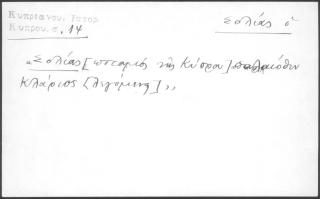 Κυπριανου, Ιστορ.
Κυπρου σ. 14
Σολίας ὁ
„Σολίας [ποταμὸς τῆς Κύπρου] παλαιόθεν
Κλάριος [λεγόμενος]„